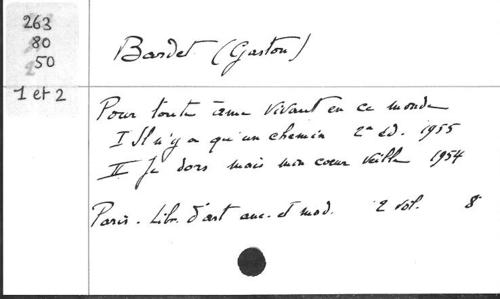 263
80
50
1 et 2
Bardet (Gaston)
Pour toute âme vivant en ce monde
I Il n'y a qu'un chemin 2e éd. 1955
II Je dors mais mon cœur veille 1954
Paris. Libr. d'art anc. et mod. 2 vol. 8